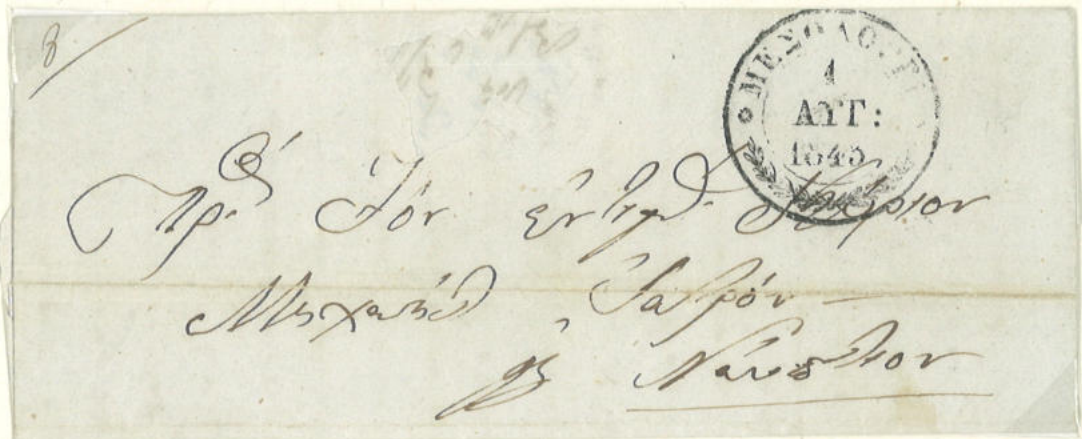 ΜΕΣΟΛΟΓΓΙ
1
ΑΥΓ:
1845
Πρὸς Τὸν Κύριον
Μιχαὴλ Ἰατρόν
Ναύπλιον